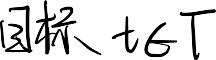 目标 t∈T